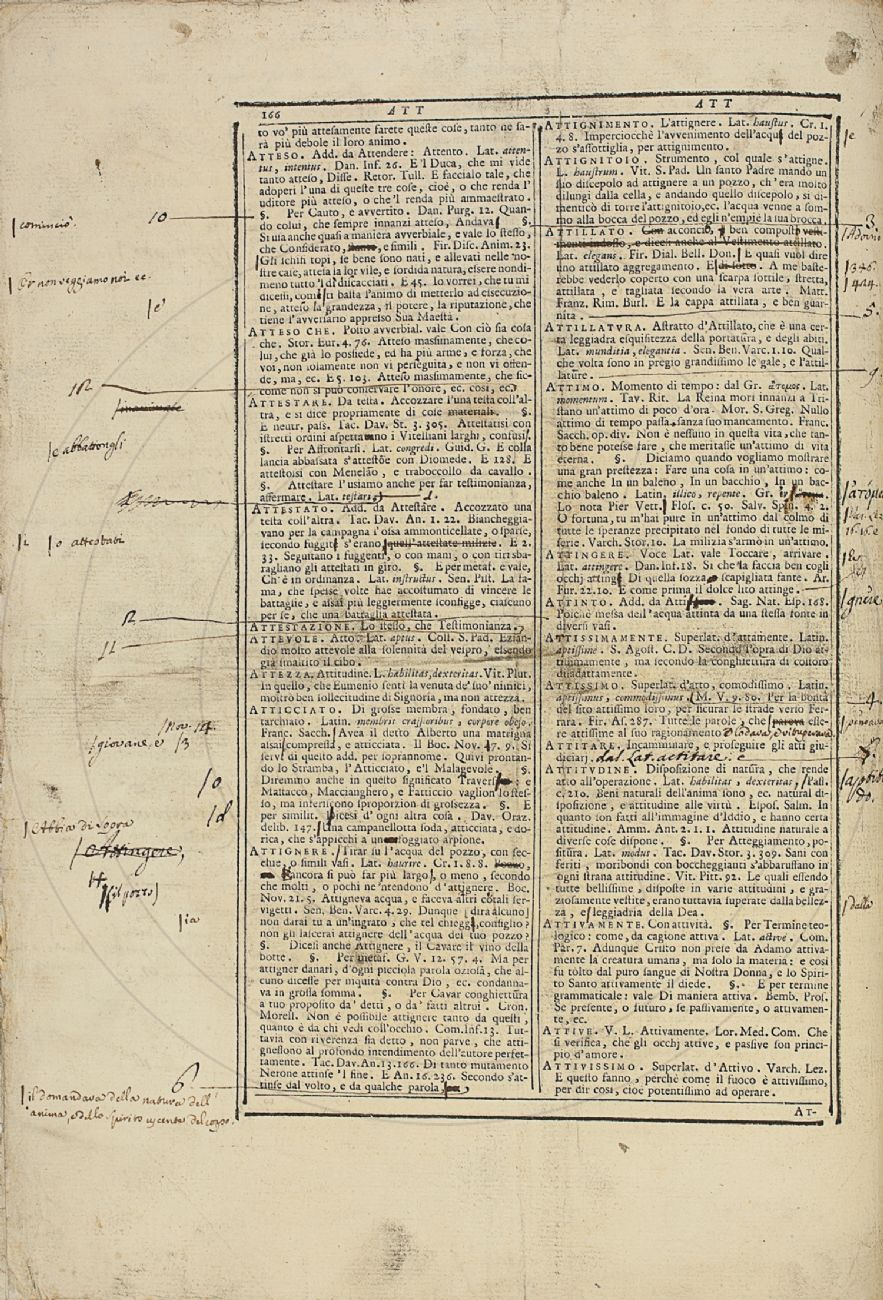 166
ATT
ATT
to vo' più attesamente sarete queste cose, tanto ne sa-
rà più debole il loro animo.
ATTESO. Add. da Attendere: Attento. Lat. atten-
tus, intentus. Dan. Inf. 26. E 'l Duca, che mi vide
tanto atteso, Disse. Retor. Tull. E facciolo tale, che
adoperi l'una di queste tre cose, cioè, o che renda l'
uditore più atteso, o che 'l renda più ammaestrato.
§. Per Cauto, e avvertito. Dan. Purg. 12. Quan-
do colui, che sempre innanzi atteso, Andava. §.
Si usa anche quasi a maniera avverbiale, e vale lo stesso,
che Considerato, e simili. Fir. Disc. Anim. 23.
Gli schifi topi, se bene sono nati, e allevati nelle no-
stre case, attesa la lor vile, e sordida natura, essere nondi-
meno tutto 'l dì discacciati. E 45. Io vorrei, che tu mi
dicessi, com ti basta l'animo di metterlo ad esecuzio-
ne, atteso la grandezza, il potere, la riputazione, che
tiene l'avversario appresso Sua Maestà.
ATTESO CHE. Posto avverbial. vale Con ciò sia cosa
che. Stor. Eur. 4. 76. Atteso massimamente, che co-
lui, che già lo possiede, ed ha più arme, e forza, che
voi, non solamente non vi perseguita, e non vi offen-
de, ma, ec. E 5. 103. Atteso massimamente, che sic-
come non si può conservare l'onore, ec. così, ec.
ATTESTARE. Da testa. Accozzare l'una testa coll'al-
tra, e si dice propriamente di cose materiali. §.
E neutr. pass. Tac. Dav. St. 3. 305. Attestatisi con
istretti ordini aspettano i Vitelliani larghi, confusi.
§. Per Affrontarsi. Lat. congredi. Guid. G. E colla
lancia abbassata s'attestoe con Diomede. E 128. E
attestossi con Menelao, e traboccollo da cavallo.
§. Attestare l'usiamo anche per far testimonianza,
affermare. Lat. testari.
ATTESTATO. Add. da Attestare. Accozzato una
testa coll'altra. Tac. Dav. An. 1. 22. Biancheggia-
vano per la campagna l'ossa ammonticellate, o sparse,
secondo fuggiti s'erano, quell'attestate milizie. E 2.
33. Seguitano i fuggenti, o con mani, o con tiri sba-
ragliano gli attestati in giro. §. E per metaf. e vale,
Ch'è in ordinanza. Lat. instructus. Sen. Pist. La fa-
ma, che spesse volte hae accostumato di vincere le
battaglie, e assai più leggiermente sconfigge, ciascuno
per se, che una battaglia attestata.
ATTESTAZIONE. Lo stesso, che Testimonianza.
ATTEVOLE. Atto. Lat. aptus. Coll. S. Pad. Ezian-
dio molto attevole alla solennità del vespro, essendo
già smaltito il cibo.
ATTEZZA. Attitudine. L. habilitas, dexteritas. Vit. Plut.
In quello, che Eumenio sentì la venuta de' suo' nimici,
mostrò ben sollecitudine di Signoria, ma non attezza.
ATTICCIATO. Di grosse membra, fondato, ben
tarchiato. Latin. membris crassioribus, corpore obeso.
Franc. Sacch. Avea il detto Alberto una matrigna
assai compressa, e atticciata. Il Boc. Nov. 47. 9. Si
servì di questo add. per soprannome. Quivi prontan-
do lo Stramba, l'Atticciato, e 'l Malagevole. §.
Diremmo anche in questo significato Traversato; e
Massacco, Maccianghero, e Fatticcio vaglion lo stes-
so, ma inferiscono sproporzion di grossezza. §. E
per similit. Dicesi d'ogni altra cosa. Dav. Oraz.
delib. 147. Una campanellotta soda, atticciata, e do-
rica, che s'appicchi a un foggiato arpione.
ATTIGNERE. Tirar su l'acqua del pozzo, con sec-
chie, o simili vasi. Lat. haurire. Cr. 1. 8. 8.
Ancora si può far più largo, o meno, secondo
che molti, o pochi ne 'ntendono d'attignere. Boc.
Nov. 21. 5. Attigneva acqua, e faceva altri cotali ser-
vigetti. Sen. Ben. Varc. 4. 29. Dunque (dirà alcuno)
non darai tu a un'ingrato, che tel chiegga, consiglio?
non gli lascerai attignere dell'acqua del tuo pozzo?
§. Dicesi anche Attignere, il Cavare il vino della
botte. §. Per metaf. G. V. 12. 57. 4. Ma per
attigner danari, d'ogni picciola parola oziosa, che al-
cuno dicesse per niquità contra Dio, ec. condanna-
va in grossa somma. §. Per Cavar conghiettura
a tuo proposito da' detti, o da' fatti altrui. Cron.
Morell. Non è possibile attignere tanto da questi,
quanto è da chi vedi coll'occhio. Com. Inf. 13. Tut-
tavia con riverenza sia detto, non parve, che atti-
gnessono al profondo intendimento dell'autore perfet-
tamente. Tac. Dav. An. 13. 166. Di tanto mutamento
Nerone attinse 'l fine. E An. 16. 236. Secondo s'at-
tinse dal volto, e da qualche parola
ATTIGNIMENTO. L'attignere. Lat. haustus. Cr. 1.
4. 8. Imperciocchè l'avvenimento dell'acqua del poz-
zo s'assottiglia, per attignimento.
ATTIGNITOIO. Strumento, col quale s'attigne.
L. haustrum. Vit. S. Pad. Un santo Padre mandò un
suo discepolo ad attignere a un pozzo, ch'era molto
dilungi dalla cella, e andando quello discepolo, si di-
menticò di torre l'attignitoio, ec. l'acqua venne a som-
mo alla bocca del pozzo, ed egli n'empiè la sua brocca.
ATTILLATO. Con acconcio, ben composto vesti-
mento indosso, e dicesi anche al Vestimento attillato.
Lat. elegans. Fir. Dial. Bell. Don. E quasi vuol dire
uno attillato aggregamento. E di sotto. A me baste-
rebbe vederlo coperto con una scarpa sottile, stretta,
attillata, e tagliata secondo la vera arte. Matt.
Franz. Rim. Burl. E la cappa attillata, e ben guar-
nita.
ATTILLATURA. Astratto d'Attillato, che è una cer-
ta leggiadra esquisitezza della portatura, e degli abiti.
Lat. munditia, elegantia. Sen. Ben. Varc. 1. 10. Qual-
che volta sono in pregio grandissimo le gale, e l'attil-
lature.
ATTIMO. Momento di tempo: dal Gr. ἄτομος. Lat.
momentum. Tav. Rit. La Reina morì innanzi a Tri-
stano un'attimo di poco d'ora. Mor. S. Greg. Nullo
attimo di tempo passa, sanza suo mancamento. Franc.
Sacch. op. div. Non è nessuno in questa vita, che tan-
to bene potesse fare, che meritasse un'attimo di vita
eterna. §. Diciamo quando vogliamo mostrare
una gran prestezza: Fare una cosa in un'attimo: co-
me anche In un baleno, In un bacchio, In un bac-
chio baleno. Latin. illico, repente. Gr.
Lo nota Pier Vett. Flos. c. 50. Salv. Spin. 4. 2.
O fortuna, tu m'hai pure in un'attimo dal colmo di
tutte le speranze precipitato nel fondo di tutte le mi-
serie. Varch. Stor. 10. La milizia s'armò in un'attimo.
ATTINGERE. Voce Lat. vale Toccare, arrivare.
Lat. attingere. Dan. Inf. 18. Sì che la faccia ben cogli
occhj attinghe Di quella sozza, e scapigliata fante. Ar.
Fur. 22. 10. E come prima il dolce lito attinge.
ATTINTO. Add. da Atti. Sag. Nat. Esp. 168.
Poichè messa dell'acqua attinta da una stessa fonte in
diversi vasi.
ATTISSIMAMENTE. Superlat. d'attamente. Latin.
aptissime. S. Agost. C. D. Secondo l'opra di Dio at-
tissimamente, ma secondo la conghiettura di costoro
disadattamente.
ATTISSIMO. Superlat. d'atto, comodissimo. Latin.
aptissimus, commodissimus. M. V. 9. 80. Per la bontà
del sito attissimo loro, per sicurar le strade verso Fer-
rara. Fir. As. 287. Tutte le parole, che pareva esse-
re attissime al suo ragionamento
ATTITARE. Incamminare, e proseguire gli atti giu-
diciarj. dal Lat. actitare.
ATTITUDINE. Disposizione di natura, che rende
atto all'operazione. Lat. habilitas, dexteritas. Pass.
c. 210. Beni naturali dell'anima sono, ec. natural di-
sposizione, e attitudine alle virtù. Espos. Salm. In
quanto son fatti all'immagine d'Iddio, e hanno certa
attitudine. Amm. Ant. 2. 1. 1. Attitudine naturale a
diverse cose dispone. §. Per Atteggiamento, po-
situra. Lat. modus. Tac. Dav. Stor. 3. 309. Sani con
feriti, moribondi con boccheggianti s'abbaruffano in
ogni strana attitudine. Vit. Pitt. 92. Le quali essendo
tutte bellissime, disposte in varie attitudini, e gra-
ziosamente vestite, erano tuttavia superate dalla bellez-
za, e leggiadria della Dea.
ATTIVAMENTE. Con attività. §. Per Termine teo-
logico: come, da cagione attiva. Lat. active. Com.
Par. 7. Adunque Cristo non prese da Adamo attiva-
mente la creatura umana, ma solo la materia: e così
fu tolto dal puro sangue di Nostra Donna, e lo Spiri-
to Santo attivamente il diede. §. E per termine
grammaticale: vale Di maniera attiva. Bemb. Pros.
Se presente, o futuro, se passivamente, o attivamen-
te, ec.
ATTIVE. V. L. Attivamente. Lor. Med. Com. Che
si verifica, che gli occhj attive, e passive son princi-
pio d'amore.
ATTIVISSIMO. Superlat. d'Attivo. Varch. Lez.
E questo fanno, perchè come il fuoco è attivissimo,
per dir così, cioè potentissimo ad operare.
AT-
cominciò.
10
Or non veggiamo noi ec.
è
12
e abbatrongli
i
o attestati
12
11
Nov. 14.
giovane, e
13
o
d
Abbia di sopra
Attingere,
[il pozzo]
ia
6
il domandava della natura dell'
anima, e dello spirito uscente del corpo.
e
3
1346
1414
5.
9
gnere
4.
dalla